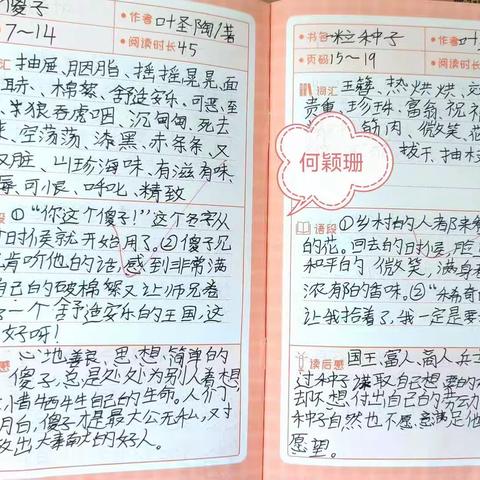 傻子
作者 叶圣陶/著
7～14
阅读时长 45
汇 抽屉、胭脂、摇摇晃晃、面
耳赤、棉絮、舒适安乐、可遇、至
羊狼吞虎咽、沉甸甸、死去
来、空荡荡、漆黑、赤条条、又
又脏、山珍海味、有滋有味、
辱、可恨、呼叱、精致
段 ①“你这个傻子！”这个名字从
时候就开始用了。②傻子见
肯听他的话，感到非常满
自己的破棉絮又让师兄着
了一个舒适安乐的王国，这
好呀！
感 心地善良、思想简单的
傻子，总是处处为别人着想，
惜牺牲自己的生命。人们
明白，傻子才是最大公无私，对
做出大事的好人。
书名 一粒种子
作者 叶
页码 15～19
阅读时长
词汇 玉簪、热烘烘、
贵重、珍珠、富翁、祝
筋肉、微笑、
拔干、抽
何颖珊
语段 ①乡村的人都来
的花。回去的时候，脸
和平的微笑，满身
浓郁的香味。②“稀奇
让我拾着了，我一定是要
读后感 国王、富人、商人、兵士
过种子谋取自己想要的
却不想付出自己的劳动
种子自然也不愿意满足他
愿望。